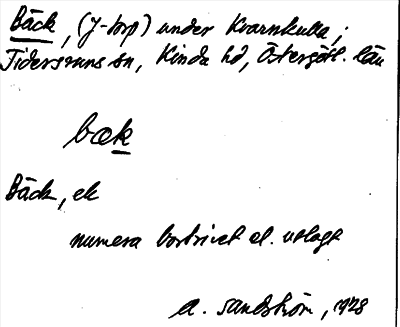 Bäck, (J-torp) under Kvarnkulla;
Tidersrums sn, Kinda hd, Östergötl. län
bæk
Bäck, ek
numera bortrivet el. utlagt
A. Sandström, 1928